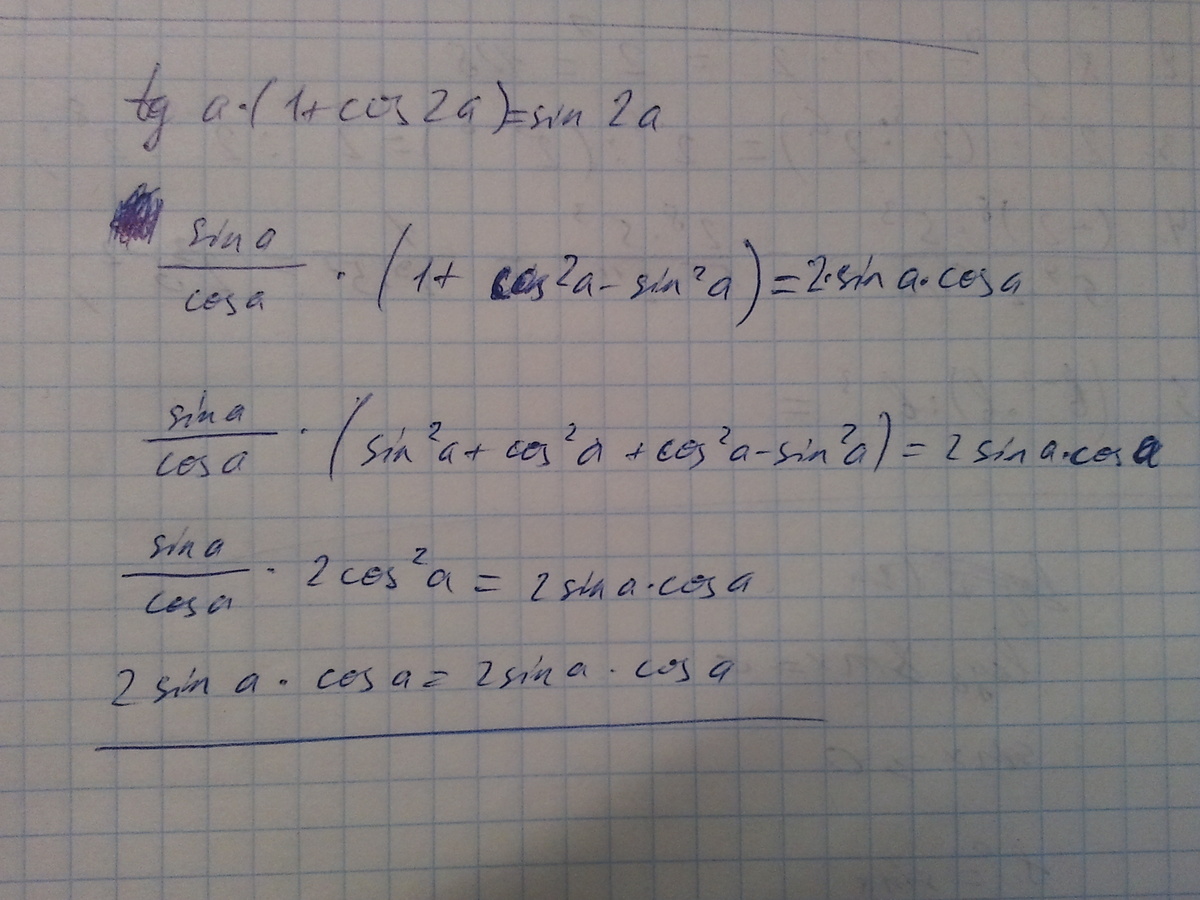 tg a·(1+cos2a)=sin 2a
sin a / cos a · (1+ cos²a-sin²a)=2·sin a·cos a
sin a / cos a · (sin²a+cos²a+cos²a-sin²a)=2sin a·cos a
sin a / cos a · 2cos²a=2sin a·cos a
2 sin a·cos a=2sin a·cos a